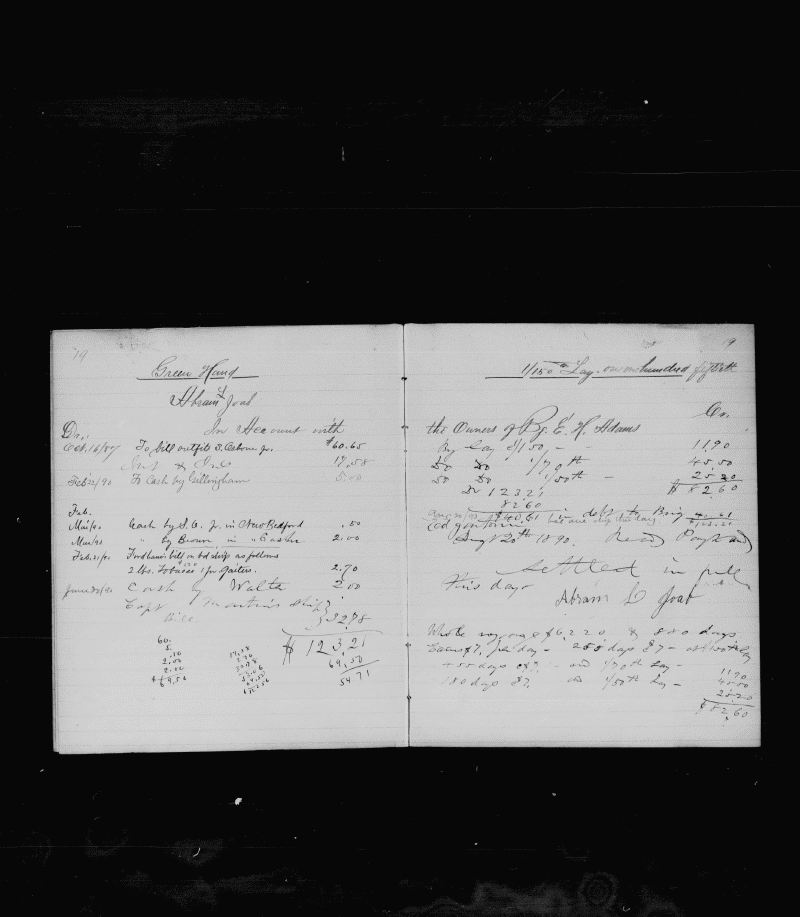 79
Green Hand
Abram L Joab
In Account with
Dr.
Oct. 16/87 To bill outfits S. Osborn Jr. $60.65
17.58
Feb 22/90 To Cash by Gillingham 5.00
Feb.
Mar/90 Cash by S.O. Jr. in New Bedford .50
Mar/90 " by Brown in " Easter 2.00
Feb. 21/90 Fordham's bill on bd ship as follows
2 lbs. Tobacco 1 pr Gaiters. 2.70
June 30/90 Cash by Walta 2.00
Capt Martin's Ship
32.78
$123.21
69.50
54.71
60.
5.
.50
2.00
2.00
$69.50
17.58
2.70
79
1/150th Lay. one hundred fiftieth
Cr.
the Owners of Bg. E. H. Adams
By Lay 1/150, - 11.90
Do Do 1/70th 45.50
Do Do 1/50th - 25.20
Dr 123.21 $82.60
82.60
$40.61 in debt to Brig 40.61
$123.21
Aug 20th 1890.
settled in full
this day
Abram L Joab
Whole voyage $6,220, & 880 days
Earns $7, per day - 255 days $7 - at 1/150th Lay
455 days $7. - and 1/70th Lay - 11.90
180 days $7. and 1/50th Lay - 45.50
25.20
$82.60